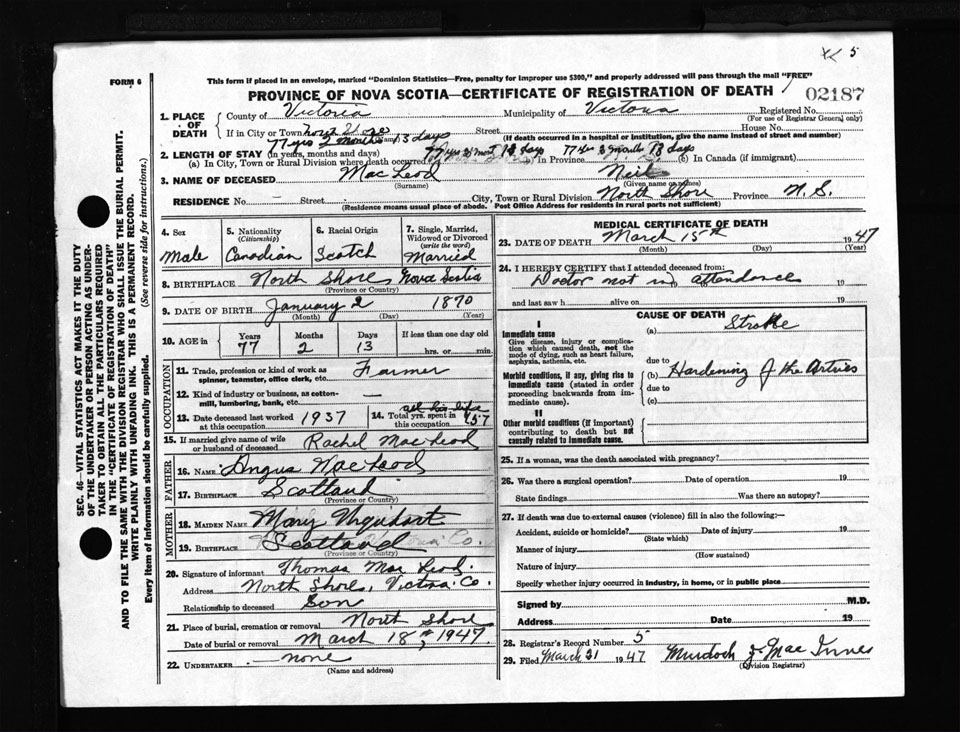 5
FORM 6
This form if placed in an envelope, marked "Dominion Statistics—Free, penalty for improper use $300," and properly addressed will pass through the mail "FREE"
PROVINCE OF NOVA SCOTIA—CERTIFICATE OF REGISTRATION OF DEATH
02187
1. PLACE OF DEATH
County of Victoria Municipality of Victoria Registered No.
(For use of Registrar General only)
If in City or Town Street House No.
(If death occurred in a hospital or institution, give the name instead of street and number)
77 yrs 2 months 13 days
2. LENGTH OF STAY (in years, months and days)
(a) In City, Town or Rural Division where death occurred 77 yrs 2 mont 13 days In Province 77 yrs 2 months 13 days (b) In Canada (if immigrant)
3. NAME OF DECEASED MacLeod Neil
(Surname) (Given name or names)
RESIDENCE No. — Street — City, Town or Rural Division North Shore Province N.S.
(Residence means usual place of abode. Post Office Address for residents in rural parts not sufficient)
4. Sex
Male
5. Nationality (Citizenship)
Canadian
6. Racial Origin
Scotch
7. Single, Married, Widowed or Divorced (write the word)
Married
8. BIRTHPLACE North Shore Nova Scotia
(Province or Country)
9. DATE OF BIRTH January 2 1870
(Month) (Day) (Year)
10. AGE in Years Months Days If less than one day old
77 2 13 hrs. or min.
OCCUPATION
11. Trade, profession or kind of work as spinner, teamster, office clerk, etc. Farmer
12. Kind of industry or business, as cotton-mill, lumbering, bank, etc. —
13. Date deceased last worked at this occupation 1937
14. Total yrs. spent in this occupation all his life 57
15. If married give name of wife or husband of deceased Rachel MacLeod
FATHER
16. NAME Angus MacLeod
17. BIRTHPLACE Scotland
(Province or Country)
MOTHER
18. MAIDEN NAME Mary Urquhart
19. BIRTHPLACE Scotland
(Province or Country)
20. Signature of informant Thomas MacLeod
Address North Shore, Victoria Co.
Relationship to deceased Son
21. Place of burial, cremation or removal North Shore
Date of burial or removal March 18th, 1947
22. UNDERTAKER none
(Name and address)
MEDICAL CERTIFICATE OF DEATH
23. DATE OF DEATH March 15th 1947
(Month) (Day) (Year)
24. I HEREBY CERTIFY that I attended deceased from:
Doctor not in attendance 19
and last saw h alive on 19
CAUSE OF DEATH
I
Immediate cause
Give disease, injury or complication which caused death, not the mode of dying, such as heart failure, asphyxia, asthenia, etc.
(a) Stroke
due to
Morbid conditions, if any, giving rise to immediate cause (stated in order proceeding backwards from immediate cause).
(b) Hardening of the Artries
due to
(c)
II
Other morbid conditions (if important) contributing to death but not causally related to immediate cause.
25. If a woman, was the death associated with pregnancy?
26. Was there a surgical operation? Date of operation 19
State findings Was there an autopsy?
27. If death was due to external causes (violence) fill in also the following:—
Accident, suicide or homicide? Date of injury 19
(State which)
Manner of injury
(How sustained)
Nature of injury
Specify whether injury occurred in industry, in home, or in public place
Signed by M.D.
Address Date 19
28. Registrar's Record Number 5
29. Filed March 31 1947 Murdoch J. MacInnes
(Division Registrar)
SEC. 46—VITAL STATISTICS ACT MAKES IT THE DUTY
OF THE UNDERTAKER OR PERSON ACTING AS UNDERTAKER
TO OBTAIN ALL THE PARTICULARS REQUIRED
IN THE "CERTIFICATE OF REGISTRATION OF DEATH"
AND TO FILE THE SAME WITH THE DIVISION REGISTRAR WHO SHALL ISSUE THE BURIAL PERMIT.
WRITE PLAINLY WITH UNFADING INK. THIS IS A PERMANENT RECORD.
Every item of information should be carefully supplied. (See reverse side for instructions.)